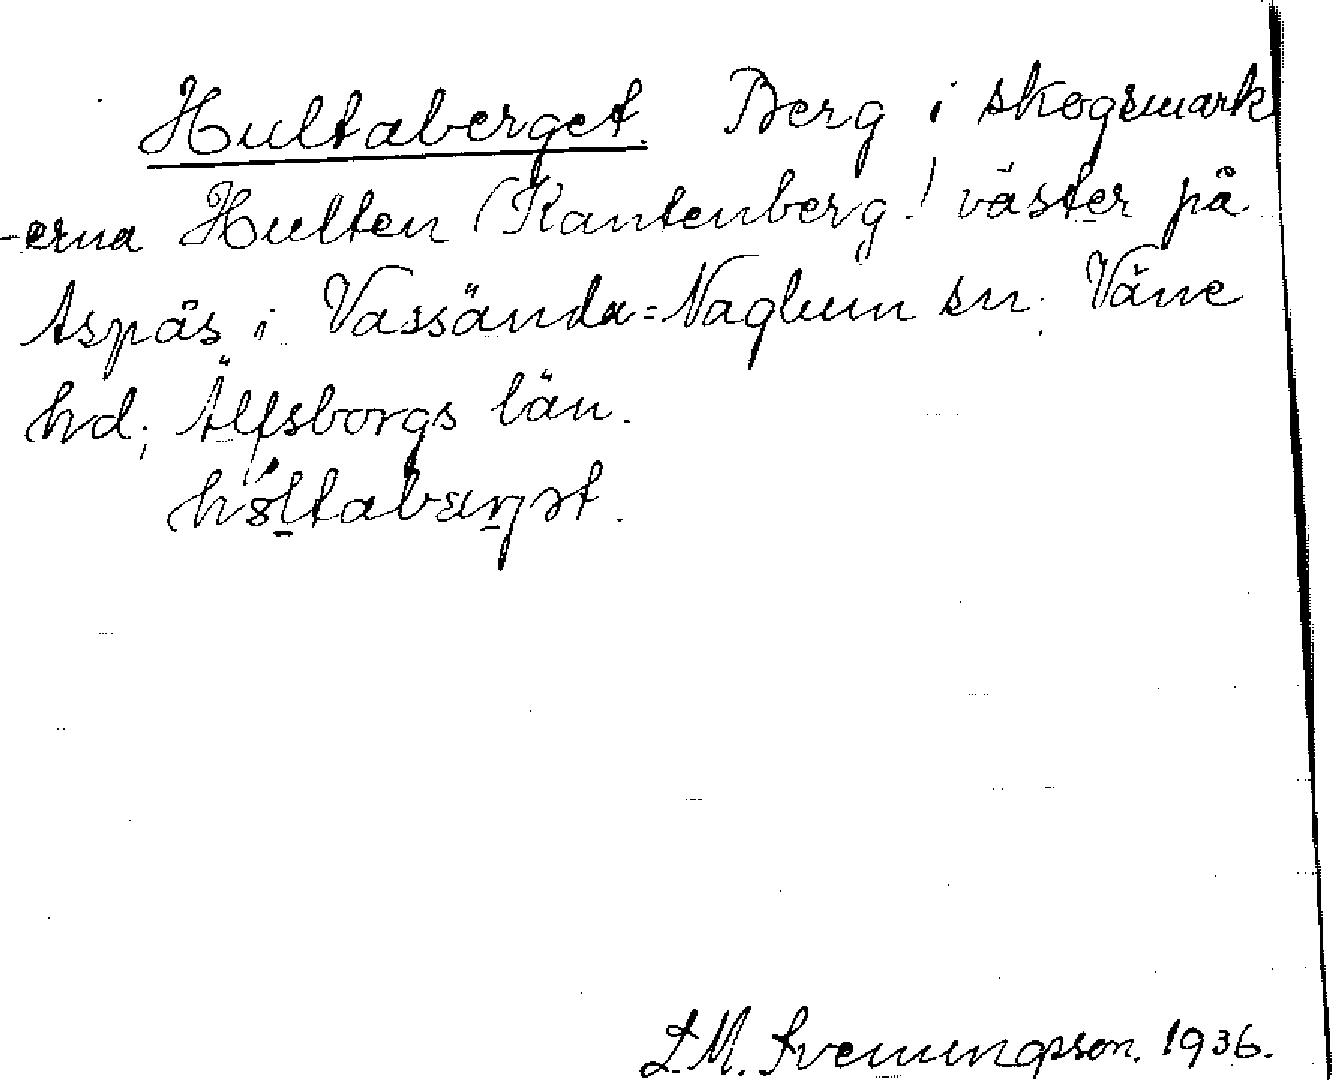 Hultaberget. Berg i skogsmark
-erna Hulten (Kantenberg) väster på
Aspås i Vassända=Naglum sn. Väne
hd; Älfsborgs län.
L.M. Svenungsson. 1936.